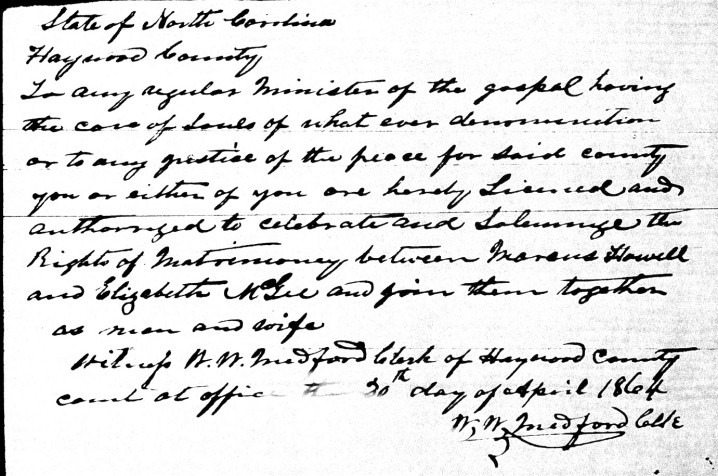 State of North Carolina
Haywood County
To any regular Minister of the gospel having
the care of Souls of what ever denomination
or to any justice of the peace for said county
you or either of you are hereby Licened and
authorized to celebrate and Solemnize the
Rights of Matrimoney between Marcus Howell
and Elizabeth McGee and join them together
as man and wife
Witness W. W. Medford Clerk of Haywood County
court at office the 30th day of April 1864
W. W. Medford Clk